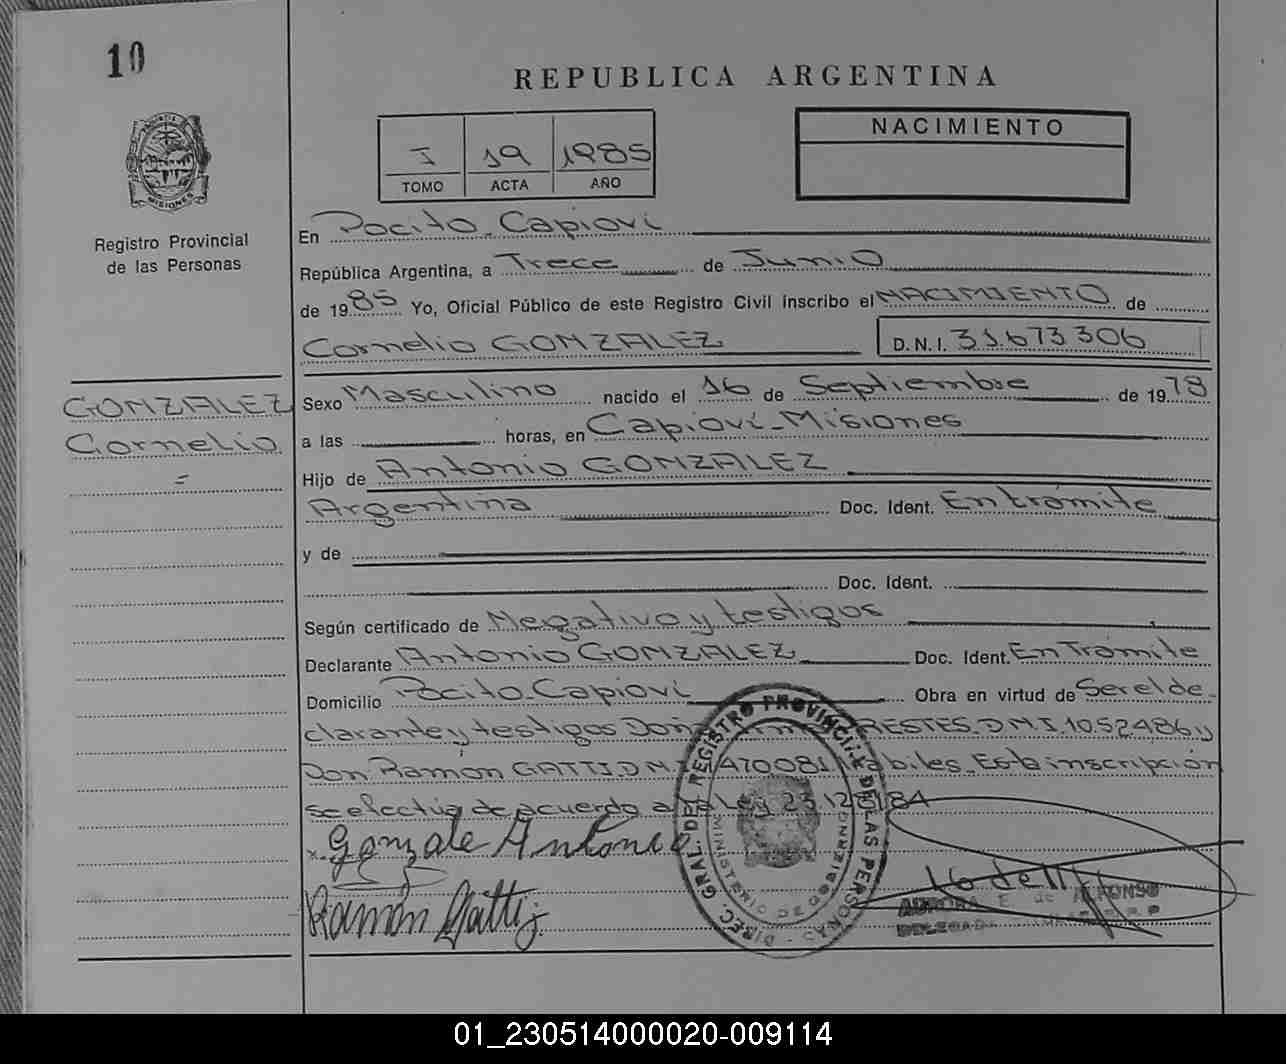 10
REPUBLICA ARGENTINA
I 19 1985
TOMO ACTA AÑO
NACIMIENTO
MISIONES
Registro Provincial
de las Personas
En Pocito-Capioví
República Argentina, a Trece de Junio
de 1985 Yo, Oficial Público de este Registro Civil inscribo el NACIMIENTO de
Cornelio GONZALEZ D.N.I. 31.673.306
GONZALEZ
Cornelio
=
Sexo Masculino nacido el 16 de Septiembre de 1978
a las horas, en Capioví-Misiones
Hijo de Antonio GONZALEZ
Argentina Doc. Ident. En trámite
y de
Doc. Ident.
Según certificado de Negativo y testigos
Declarante Antonio GONZALEZ Doc. Ident. En Trámite
Domicilio Pocito-Capioví Obra en virtud de Ser el de-
clarante y testigos Don RESTES-D.M.I. y
Don Ramón GATTI.D.M. hábiles-Esta inscripción
se efectúa de acuerdo a la Ley
x Gonzale Antonio
Ramón Gatti
DIREC. GRAL. DEL REGISTRO PROVINCIAL DE LAS PERSONAS
MINISTERIO DE GOBIERNO
AURORA E. de ALFONSO
DELEGADA
01_230514000020-009114